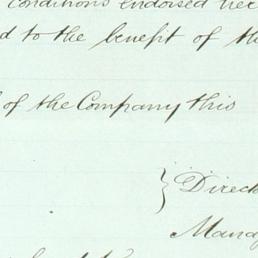 conditions endorsed
d to the benefit of the
of the Company this
Direct
Mana